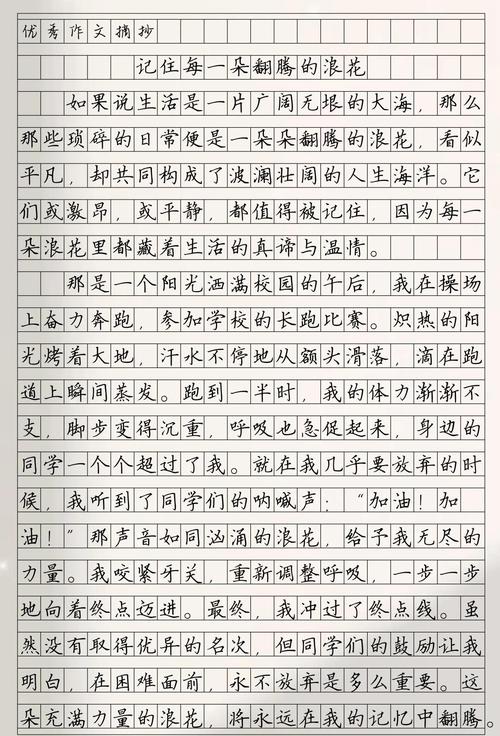 优秀作文摘抄
记住每一朵翻腾的浪花
如果说生活是一片广阔无垠的大海，那么
那些琐碎的日常便是一朵朵翻腾的浪花，看似
平凡，却共同构成了波澜壮阔的人生海洋。它
们或激昂，或平静，都值得被记住，因为每一
朵浪花里都藏着生活的真谛与温情。
那是一个阳光洒满校园的午后，我在操场
上奋力奔跑，参加学校的长跑比赛。炽热的阳
光烤着大地，汗水不停地从额头滑落，滴在跑
道上瞬间蒸发。跑到一半时，我的体力渐渐不
支，脚步变得沉重，呼吸也急促起来，身边的
同学一个个超过了我。就在我几乎要放弃的时
候，我听到了同学们的呐喊声：“加油！加
油！”那声音如同汹涌的浪花，给予我无尽的
力量。我咬紧牙关，重新调整呼吸，一步一步
地向着终点迈进。最终，我冲过了终点线。虽
然没有取得优异的名次，但同学们的鼓励让我
明白，在困难面前，永不放弃是多么重要。这
朵充满力量的浪花，将永远在我的记忆中翻腾。